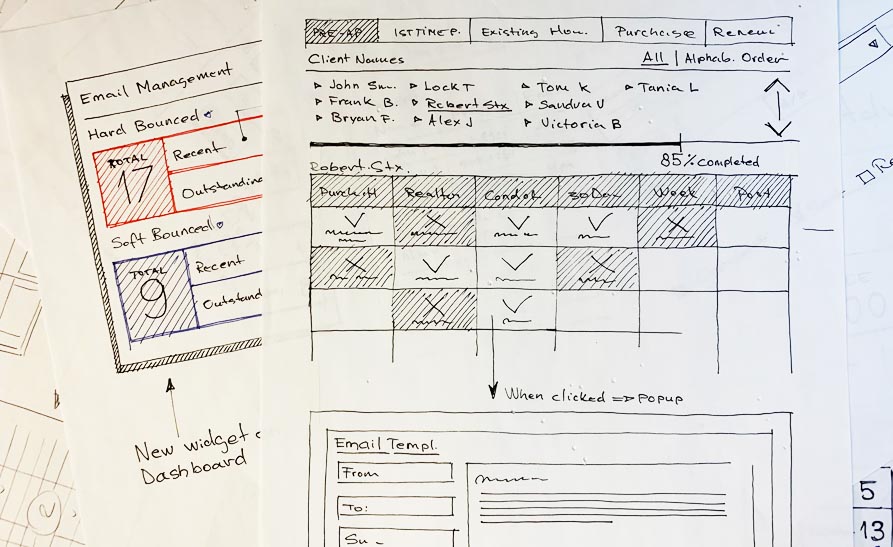 PRE-AP
1ST TIME P.
Existing Hom.
Purchase
Renewi
Client Names
All | Alphab. Order
John Sm.
Lock T
Tom K
Tania L
Frank B.
Robert Stx
Sandra V
Bryan F.
Alex J
Victoria B
85% completed
Robert. Stx.
Realtor
30 Day
Week
Post
When clicked => POPUP
Email Templ.
From
To:
Su
Email Management
Hard Bounced
TOTAL
17
Recent
Outstanding
Soft Bounced
TOTAL
9
Recent
Outstand
New widget
Dashboard
2
5
13